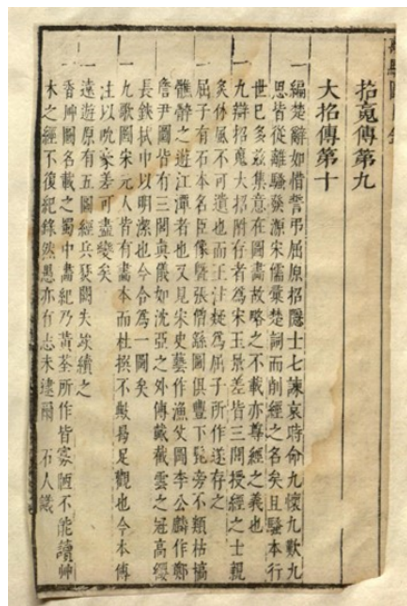 招䰟傳第九
大招傳第十
一編楚辭如惜誓弔屈原招隱士七諫哀時命九懷九歎九
思皆從離騷發源宋儒彙楚詞而削經之名矣且騷本行
世已多茲集意在圖畫故略之不載亦尊經之義也
一九辯招䰟大招附存者為宋玉景差皆三閭授經之士親
炙休風不可遺也而王注疑為屈子所作遂存之
一屈子有石本名臣像暨張僧繇圖俱豐下髭旁不類枯槁
之遊江潭者也又見宋史藝作漁父圖李公麟作鄭
詹尹圖皆有三閭真儀如沈亞之外傳戴截雲之冠高纓
長鋏拭巾以明潔也今合為一圖矣
一九歌圖宋元人皆有畫本而杜撰不典烏足觀也今本傳
注以吮豪差可盡變矣
一遠遊原有五圖經兵燹闕失俟續之
一香艸圖名載之蜀中畫紀乃黃荃所作皆寥恆不能讀艸
木之經不復紀錄然愚亦有志未逮爾 石人識